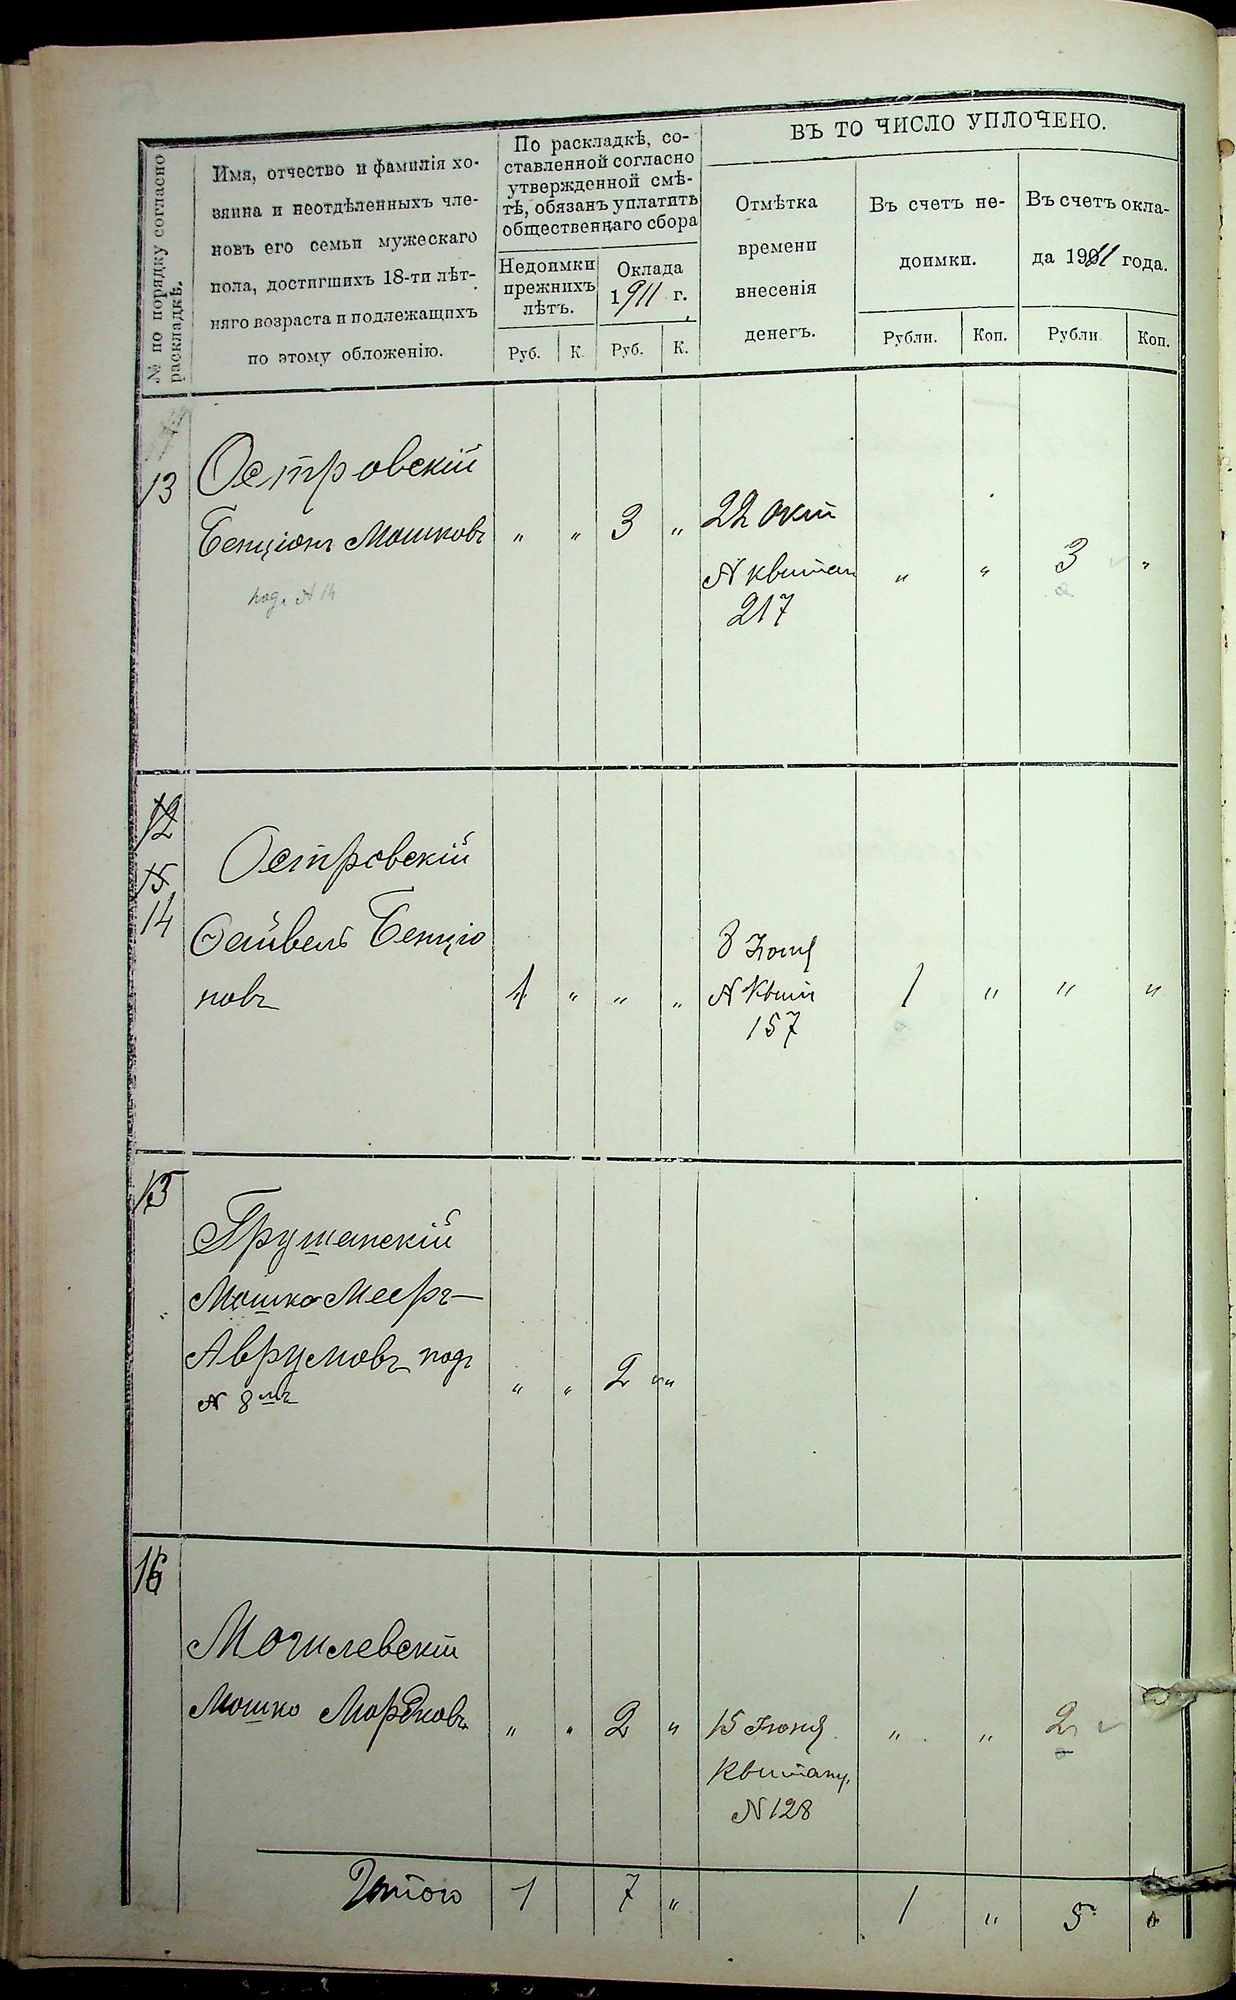 № по порядку согласно
раскладкѣ.
Имя, отчество и фамилія хо-
зяина и неотдѣленныхъ чле-
новъ его семьи мужескаго
пола, достигшихъ 18-ти лѣт-
няго возраста и подлежащихъ
по этому обложенію.
По раскладкѣ, со-
ставленной согласно
утвержденной смѣ-
тѣ, обязанъ уплатить
общественнаго сбора
Недоимки
прежнихъ
лѣтъ.
Руб. К.
Оклада
1911 г.
Руб. К.
ВЪ ТО ЧИСЛО УПЛОЧЕНО.
Отмѣтка
времени
внесенія
денегъ.
Въ счетъ не-
доимки.
Рубли. Коп.
Въ счетъ окла-
да 1911 года.
Рубли Коп.
13 Островскій
Бенціонъ Мошковъ " " 3 " 22 окт
№ квитан " " 3 "
217
под. № 14
12
15
14
Островскій
Файвель Бенціо
новъ 1 " " "
8 Іюня
№ Квит 1 " " "
157
15
Грушанскій
Мошко-Мееръ-
Аврумовъ подъ
№ 8мъ " " 2 "
16
Могилевскій
Мошко Мордковъ " " 2 " 15 Іюня " " 2
Квитанц.
№ 128
Итого 1 7 " 1 " 5 "